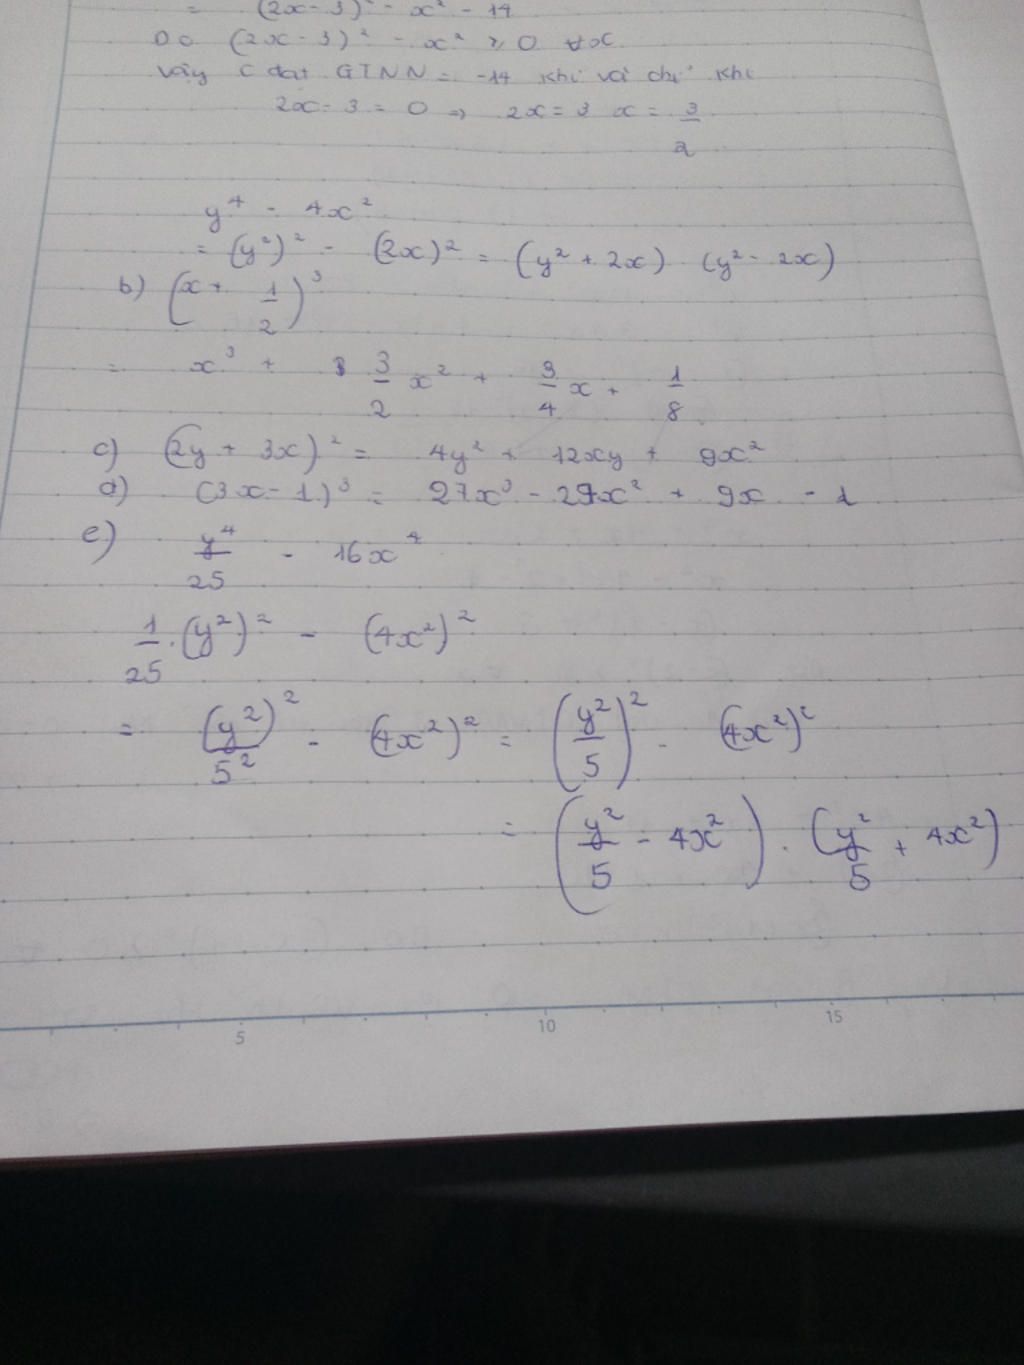 = (2x - 3)² - x² - 14
Do (2x - 3)² - x² ≥ 0 ∀x
Vậy C đạt GTNN = -14 khi và chỉ khi
2x - 3 = 0 => 2x = 3 x = 3/2
y⁴ - 4x²
= (y²)² - (2x)² = (y² + 2x) (y² - 2x)
b) (x + 1/2)³
= x³ + 3/2 x² + 3/4 x + 1/8
c) (2y + 3x)² = 4y² + 12xy + 9x²
d) (3x - 1)³ = 27x³ - 27x² + 9x - 1
e) y⁴/25 - 16x⁴
1/25 . (y²)² - (4x²)²
= (y²)²/5² - (4x²)² = (y²/5)² - (4x²)²
= (y²/5 - 4x²) . (y²/5 + 4x²)
5 10 15